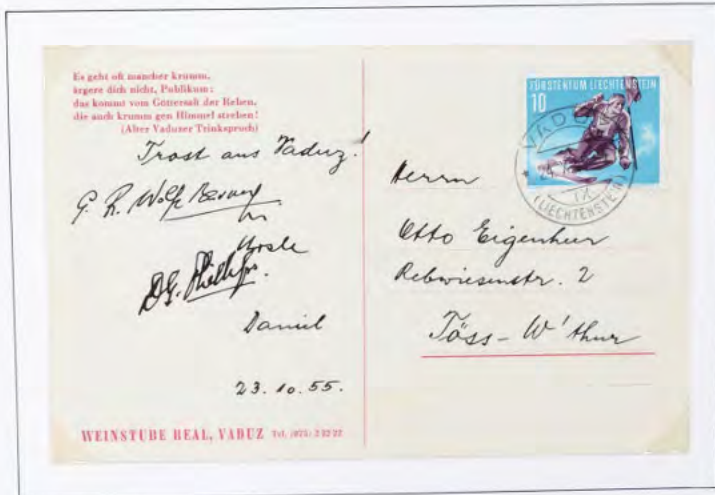 Es geht oft mancher krumm,
ärgere dich nicht, Publikum:
das kommt vom Göttersaft der Reben,
die auch krumm gen Himmel streben!
(Alter Vaduzer Trinkspruch)
Trost aus Vaduz!
G. R.
Ursle
Daniel
23.10.55.
WEINSTUBE REAL, VADUZ Tel. (075) 2 22 22
FÜRSTENTUM LIECHTENSTEIN
10
VADUZ
(LIECHTENSTEIN)
Herrn
Otto Eigenheer
Rebwiesenstr. 2
Töss - W'thur